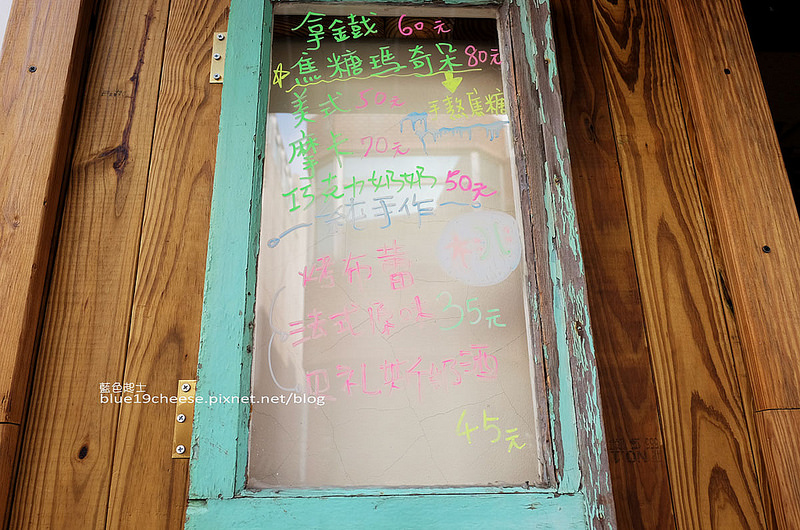 拿鐵 60元
焦糖瑪奇朵 80元
美式 50元
手整焦糖
摩卡 70元
巧克力奶奶 50元
純手作
烤布蕾
法式 35元
奶酒
45元
藍色起士
blue19cheese.pixnet.net/blog